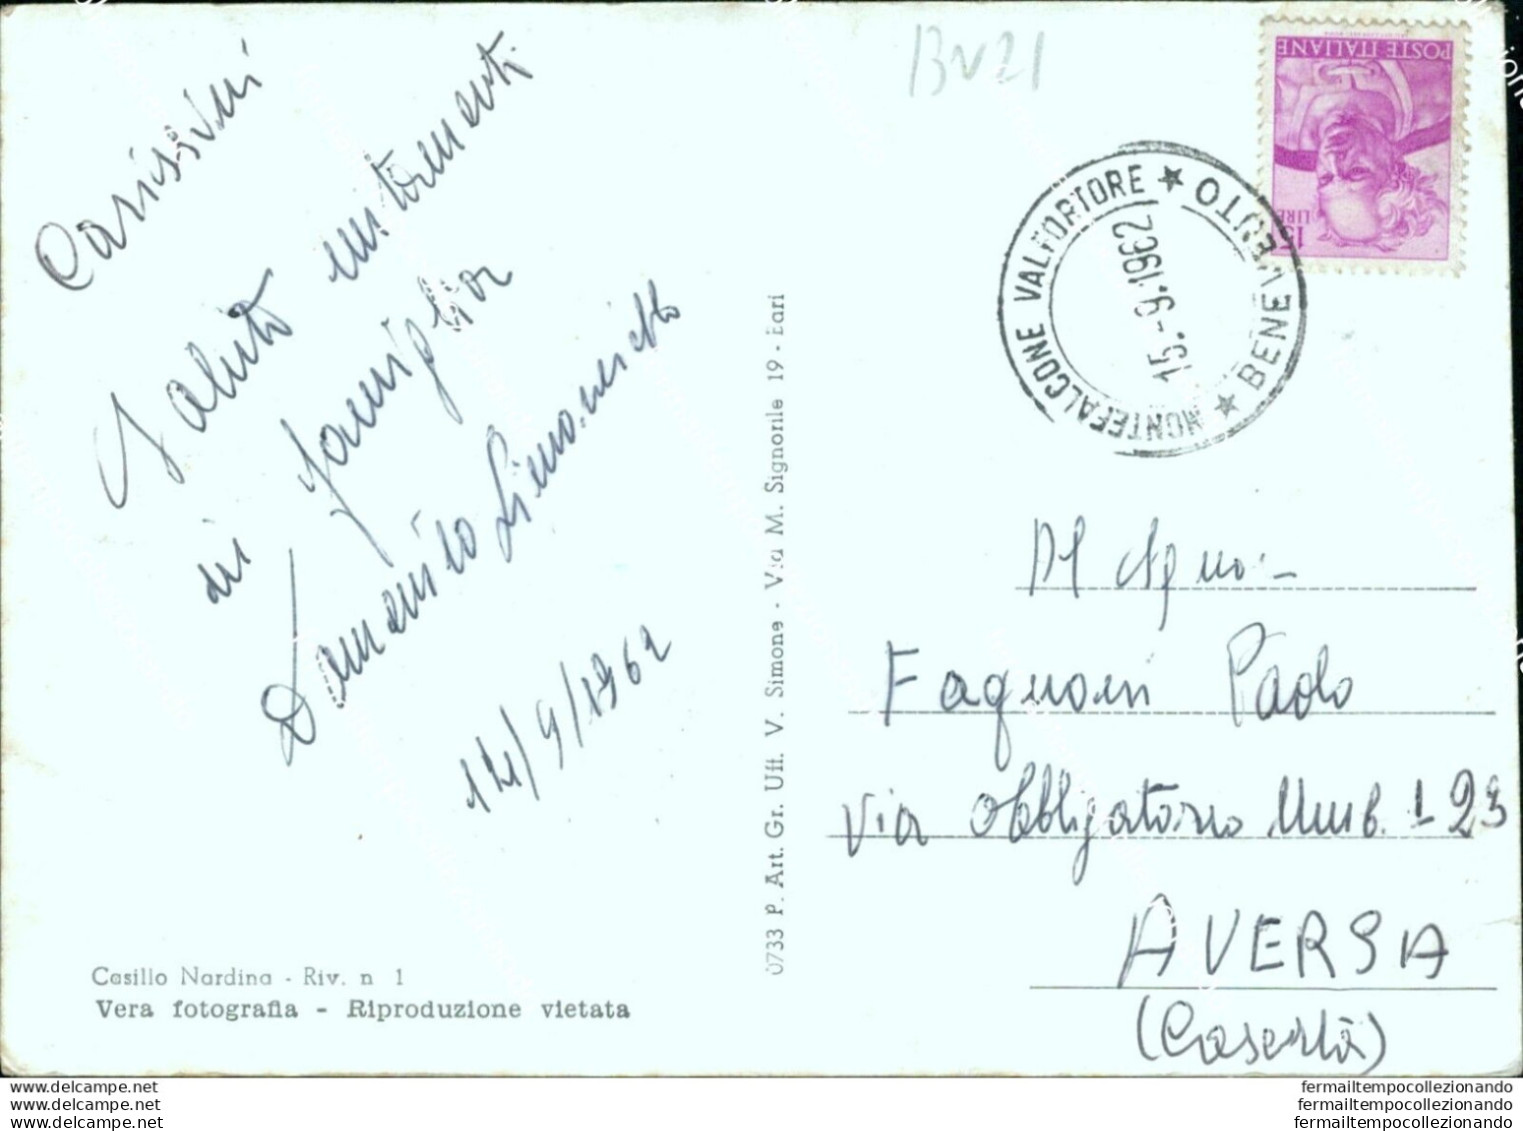 Carissimi
Saluto unitamenti
di famiglia
Domenico
14/9/1962
Casillo Nardina - Riv. n 1
Vera fotografia - Riproduzione vietata
0733 P. Art. Gr. Uff. V. Simone - Via M. Signorile 19 - Bari
BN21
POSTE ITALIANE
LIRE 15
MONTEFALCONE VALFORTORE ★ BENEVENTO ★
15.-9.1962
Al
Paolo
Via Obbligatorio Numb. 123
AVERSA
(Caserta)
delcampe.net
delcampe.net
www.delcampe.net
fermailtempocollezionando
fermailtempocollezionando
fermailtempocollezionando